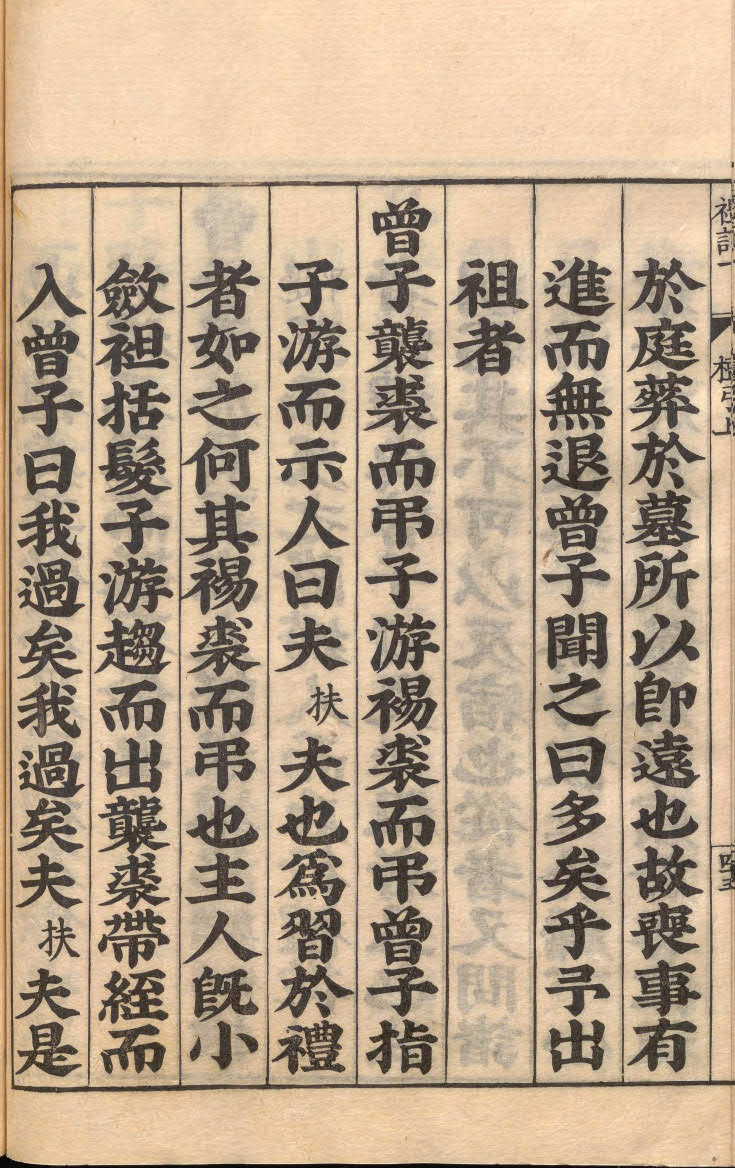 於庭葬於墓所以卽遠也故喪事有
進而無退曾子聞之曰多矣乎予出
祖者
曾子襲裘而弔子游裼裘而弔曾子指
子游而示人曰夫扶夫也爲習於禮
者如之何其裼裘而弔也主人旣小
斂袒括髮子游趨而出襲裘帶絰而
入曾子曰我過矣我過矣夫扶夫是